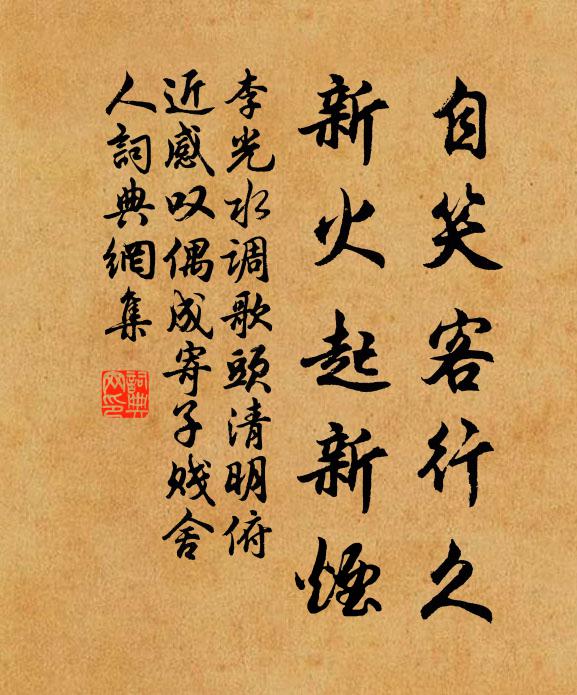 自笑客行久
新火起新煙
李光水调歌頭清明俯
近感叹偶成寄子贱舍
人詞典網集
詞典
网印